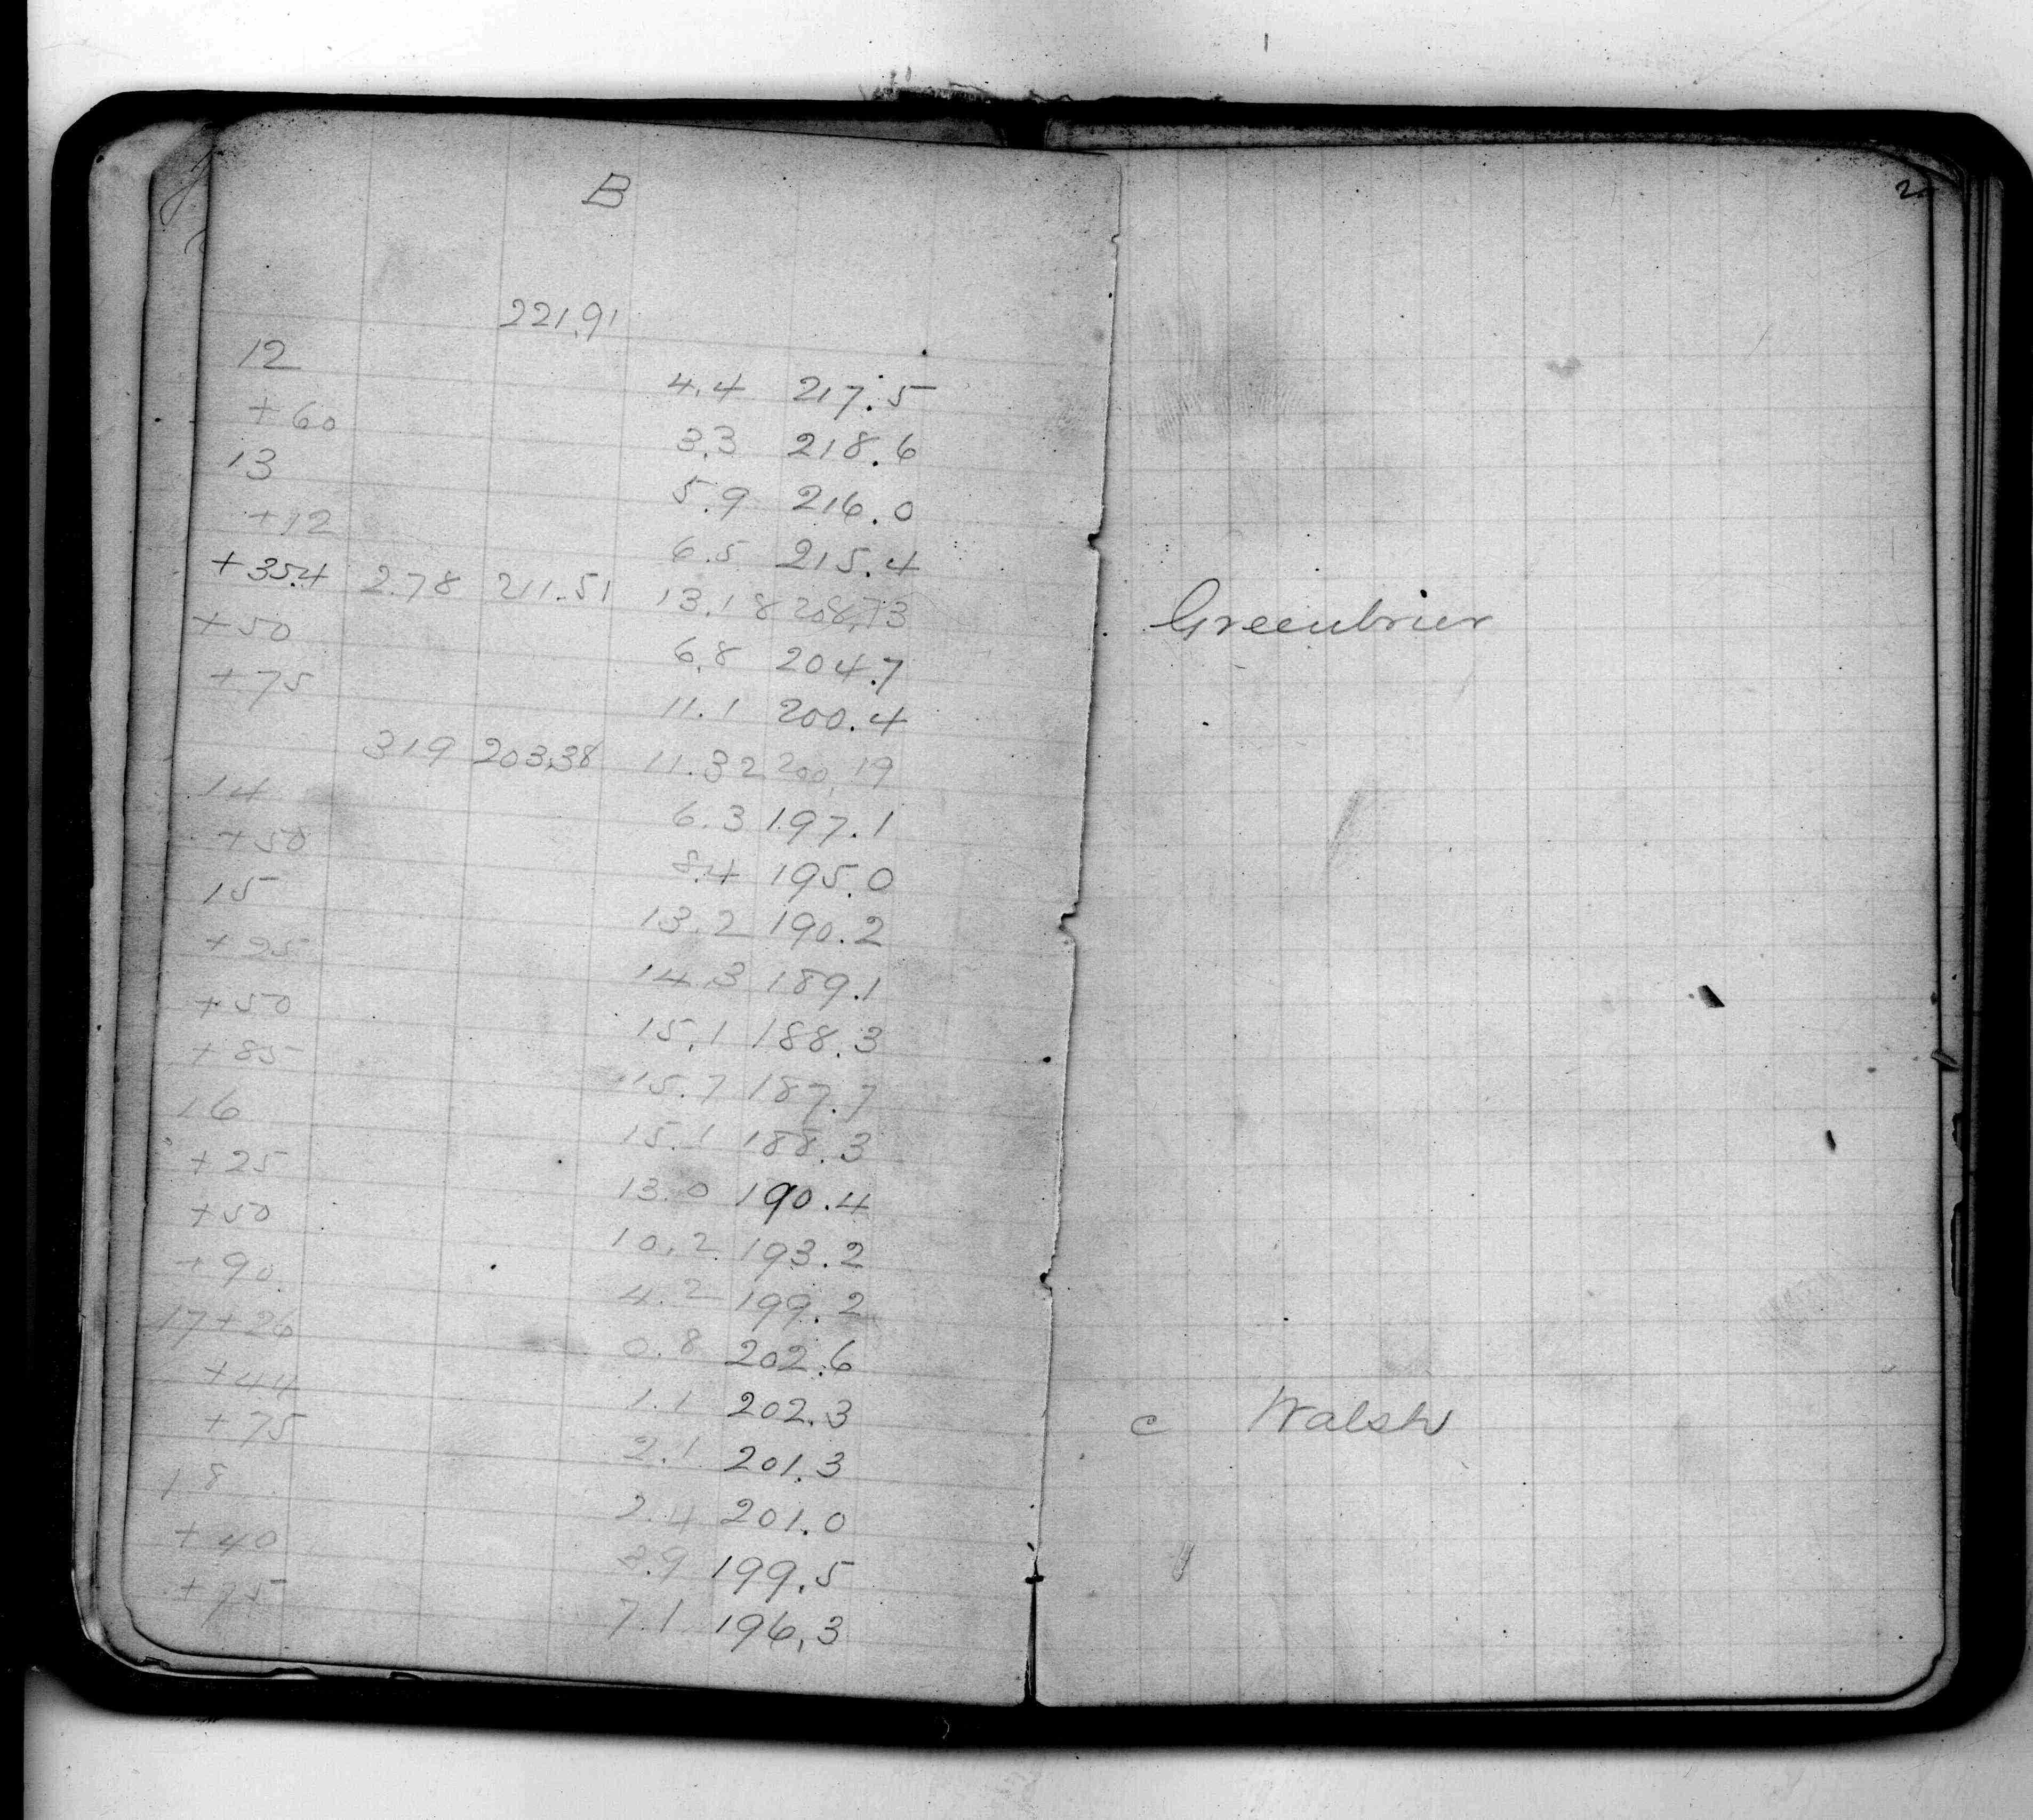 B
221.91
12 4.4 217.5
+60 3.3 218.6
13 5.9 216.0
+12 6.5 215.4
+35.4 2.78 211.51 13.18 208.73
+50 6.8 204.7
+75 11.1 200.4
319 203.38 11.32 200.19
14 6.3 197.1
+50 8.4 195.0
15 13.2 190.2
+25 14.3 189.1
+50 15.1 188.3
+85 15.7 187.7
16 15.1 188.3
+25 13.0 190.4
+50 10.2 193.2
+90 4.2 199.2
17+26 0.8 202.6
+44 1.1 202.3
+75 2.1 201.3
18 2.4 201.0
+40 3.9 199.5
+75 7.1 196.3
2
Greenbrier
c Walsh